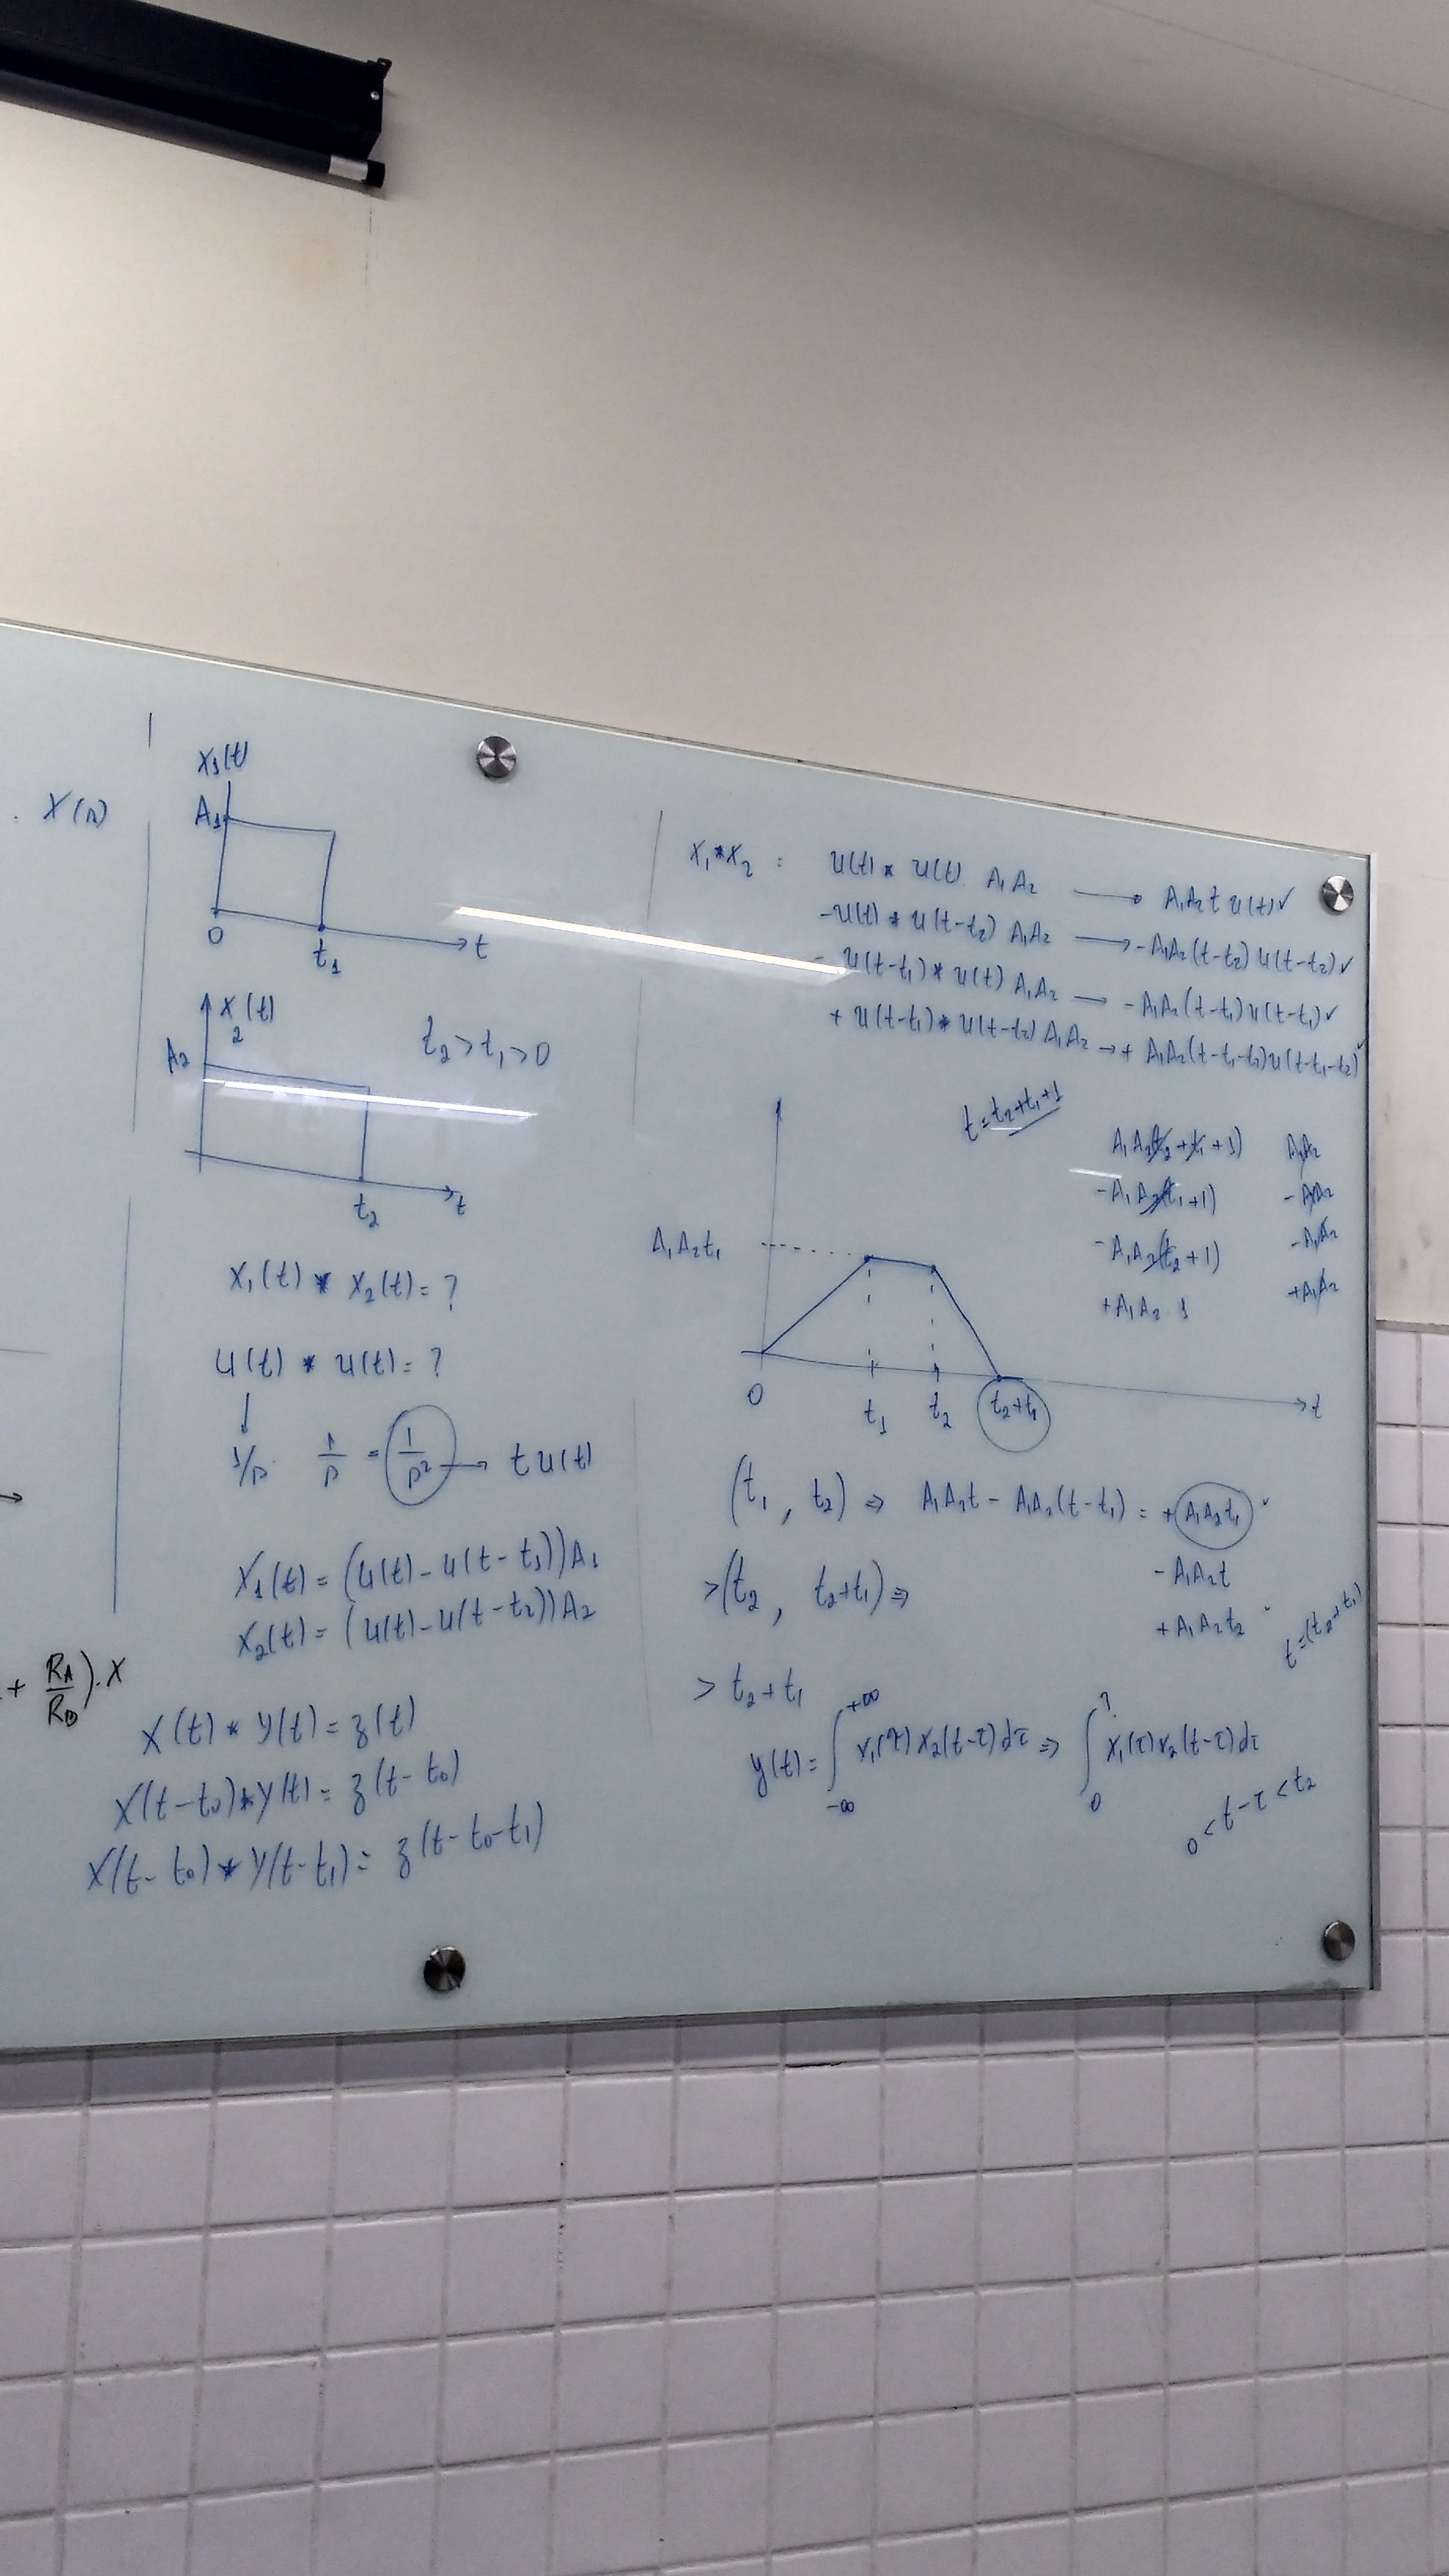 X(s)
+ R_A/R_B).X
x₁(t)
A₁
0
t₁
t
x₂(t)
A₂
t₂ > t₁ > 0
t₂
t
x₁(t) * x₂(t) = ?
u(t) * u(t) = ?
↓
1/s 1/s = 1/s² → t u(t)
x₁(t) = (u(t) - u(t-t₁))A₁
x₂(t) = (u(t) - u(t-t₂))A₂
x(t) * y(t) = z(t)
x(t-t₀) * y(t) = z(t-t₀)
x(t-t₀) * y(t-t₁) = z(t-t₀-t₁)
x₁*x₂ : u(t) * u(t). A₁A₂ → A₁A₂ t u(t) ✓
-u(t) * u(t-t₂) A₁A₂ → -A₁A₂(t-t₂) u(t-t₂) ✓
- u(t-t₁) * u(t) A₁A₂ → -A₁A₂(t-t₁) u(t-t₁) ✓
+ u(t-t₁) * u(t-t₂) A₁A₂ → + A₁A₂(t-t₁-t₂) u(t-t₁-t₂) ✓
t = t₂+t₁+1
A₁A₂(t₂+t₁+1) A₁A₂
-A₁A₂(t₁+1) -A₁A₂
-A₁A₂(t₂+1) -A₁A₂
+A₁A₂ 1 +A₁A₂
A₁A₂t₁
0
t₁
t₂
t₂+t₁
t
(t₁, t₂) ⇒ A₁A₂t - A₁A₂(t-t₁) = +A₁A₂t₁ ✓
>(t₂, t₂+t₁) ⇒ -A₁A₂t
+A₁A₂t₂
t=(t₂+t₁)
> t₂+t₁
y(t) = ∫_{-∞}^{+∞} x₁(τ) x₂(t-τ) dτ ⇒ ∫_0^? x₁(τ) x₂(t-τ) dτ
0 < t-τ < t₂